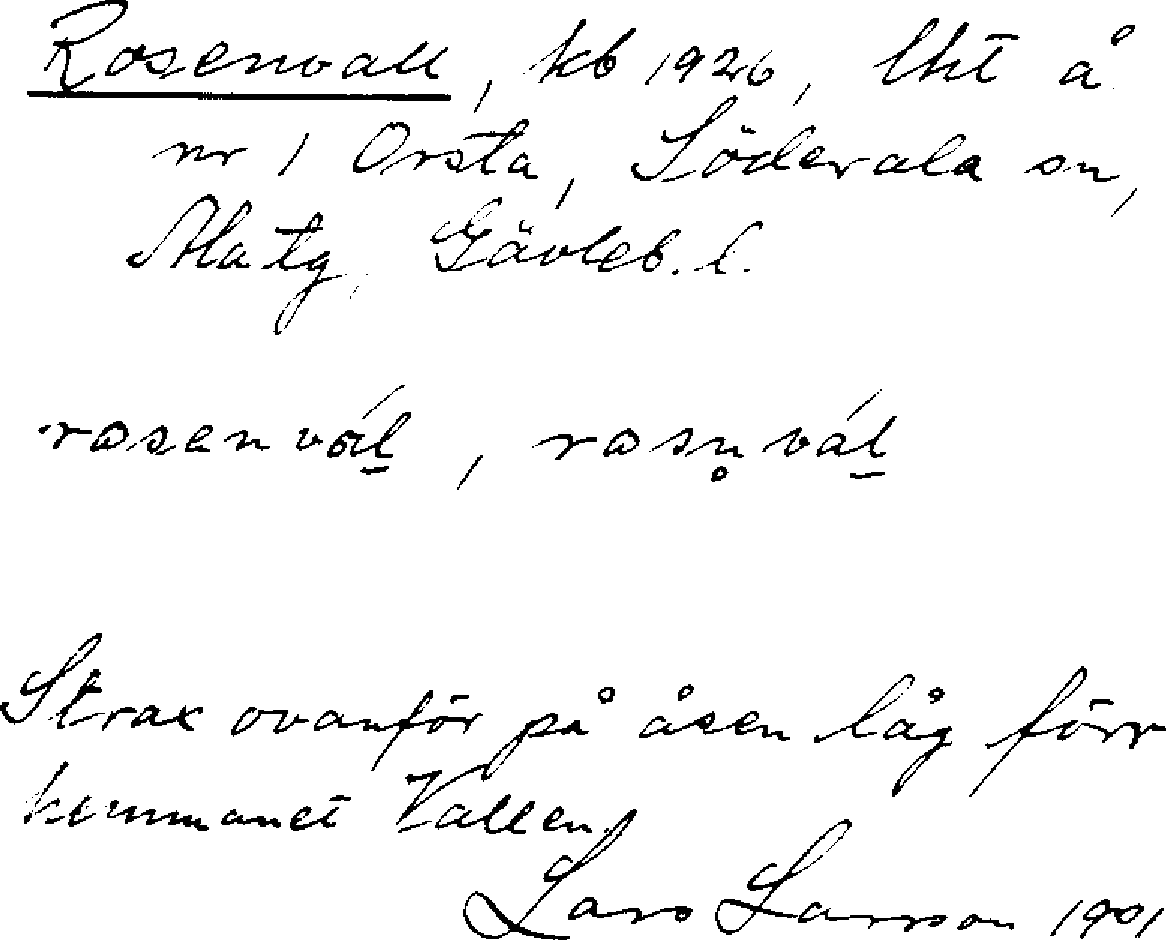 Rosenvall, kb 1926, lht å
nr 1 Orsta, Söderala sn,
Ala tg, Gävleb. l.
rosenvál̲, rosn̥vál̲
Strax ovanför på åsen låg förr
hemmanet Vallen.
Lars Larsson 1901